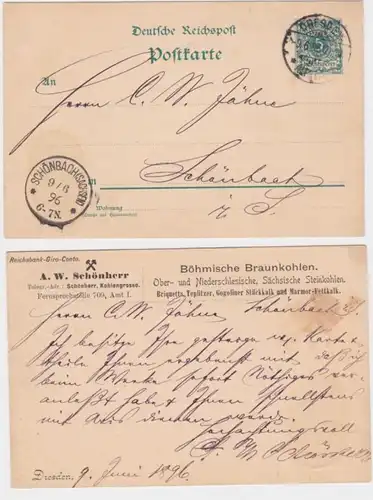 Deutsche Reichspost
Postkarte
DRESDEN
An
Herrn C. W. Jähne
SCHÖNBACH(SACHSEN)
9/6
96
6-7N.
in Schönbach
Wohnung
i. S.
Reichsbank-Giro-Conto.
A. W. Schönherr
Telegr.-Adr.: Schönherr, Kohlengrosso.
Fernsprechstelle 709, Amt I.
Böhmische Braunkohlen.
Ober- und Niederschlesische, Sächsische Steinkohlen.
Briquetts, Teplitzer, Gogoliner Stückkalk und Marmor-Fettkalk.
Herrn C. W. Jähne Schönbach
Ich besitze Ihre gestrige Karte &
theile Ihnen ergebenst mit daß ich
beim Werke sofort Nöthiges ver-
anlaßt habe & Ihnen schnellstens
mit Avis dienen werde.
Hochachtungsvoll
Dresden, 9. Juni 1896.